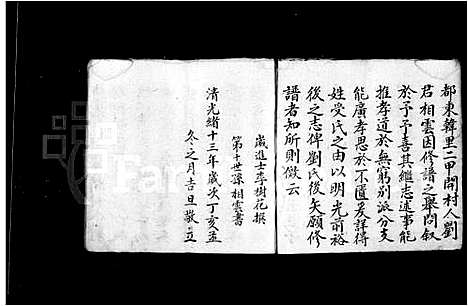 都東韓里二甲開村人劉
君相雲因修譜之舉問叙
於予予喜其繼志述事能
推孝道於無窮別派分支
能廣孝思於不匱爰詳得
姓受氏之由以明光前裕
後之志俾劉氏後矢願修
譜者知所則傚云
歲進士李樹花撰
第十世孫相雲書
清光緒十三年歲次丁亥孟
冬之月吉旦敬立